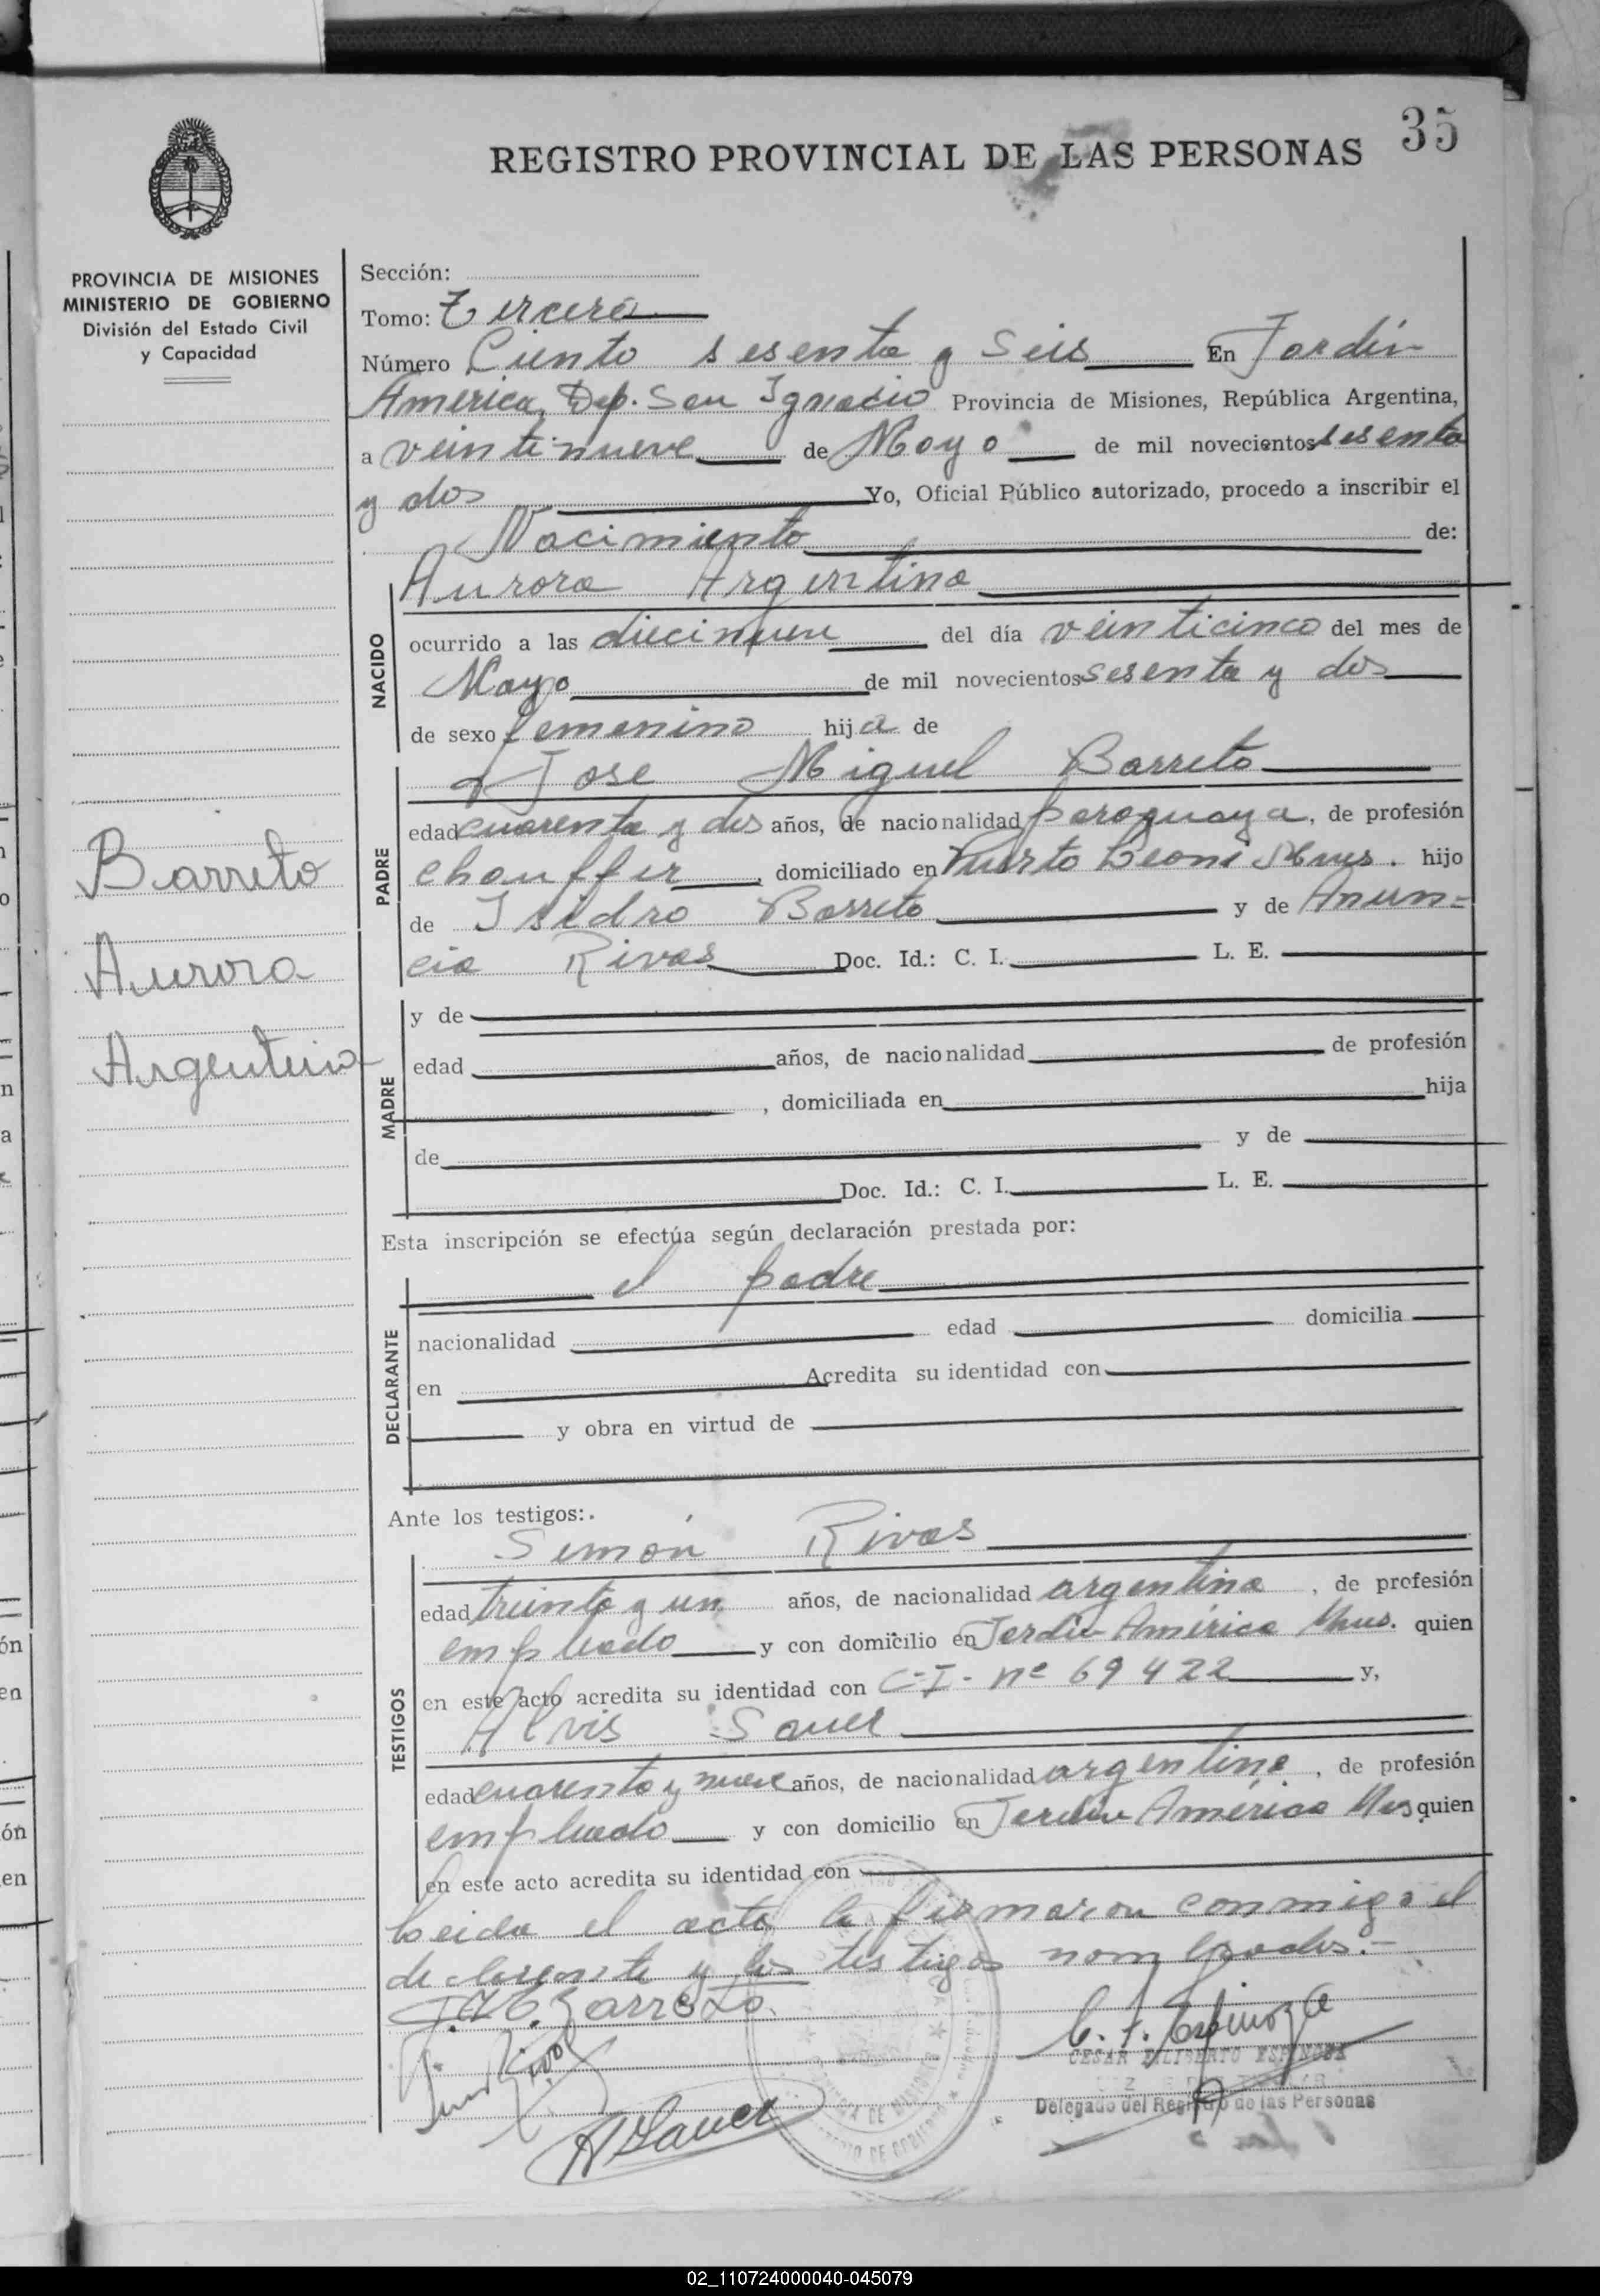 35
REGISTRO PROVINCIAL DE LAS PERSONAS
PROVINCIA DE MISIONES
MINISTERIO DE GOBIERNO
División del Estado Civil
y Capacidad
Barreto
Aurora
Argentina
Sección:
Tomo: Tercero
Número Ciento sesenta y Seis En Jardín
America, Dep. San Ignacio Provincia de Misiones, República Argentina,
a veintinueve de Mayo de mil novecientos sesenta
y dos Yo, Oficial Público autorizado, procedo a inscribir el
Nacimiento de:
Aurora Argentina
NACIDO
ocurrido a las del día veinticinco del mes de
Mayo de mil novecientos sesenta y dos
de sexo femenino hija de
Jose Miguel Barreto
PADRE
edad cuarenta y dos años, de nacionalidad paraguaya, de profesión
chouffer, domiciliado en Puerto Leoni Mnes. hijo
de Isidro Barreto y de Anun-
cia Rivas Doc. Id.: C. I. L. E.
MADRE
y de
edad años, de nacionalidad de profesión
, domiciliada en hija
de y de
Doc. Id.: C. I. L. E.
Esta inscripción se efectúa según declaración prestada por:
el padre
DECLARANTE
nacionalidad edad domicilia
en Acredita su identidad con
y obra en virtud de
Ante los testigos:
Simón Rivas
TESTIGOS
edad treinta y un años, de nacionalidad argentina, de profesión
empleado y con domicilio en Jardín América Mnes. quien
en este acto acredita su identidad con C-I- nº 69422 y,
Alvis Sauer
edad cuarenta y nueve años, de nacionalidad argentina, de profesión
empleado y con domicilio en Jardín América Mes quien
en este acto acredita su identidad con
Leida el acta la firmaron conmigo el
declarante y los testigos nombrados.-
J.M. Barreto
C. F. Espinoza
CESAR FILIBERTO ESPINOZA
Delegado del Registro de las Personas
A Sauer
02_110724000040-045079